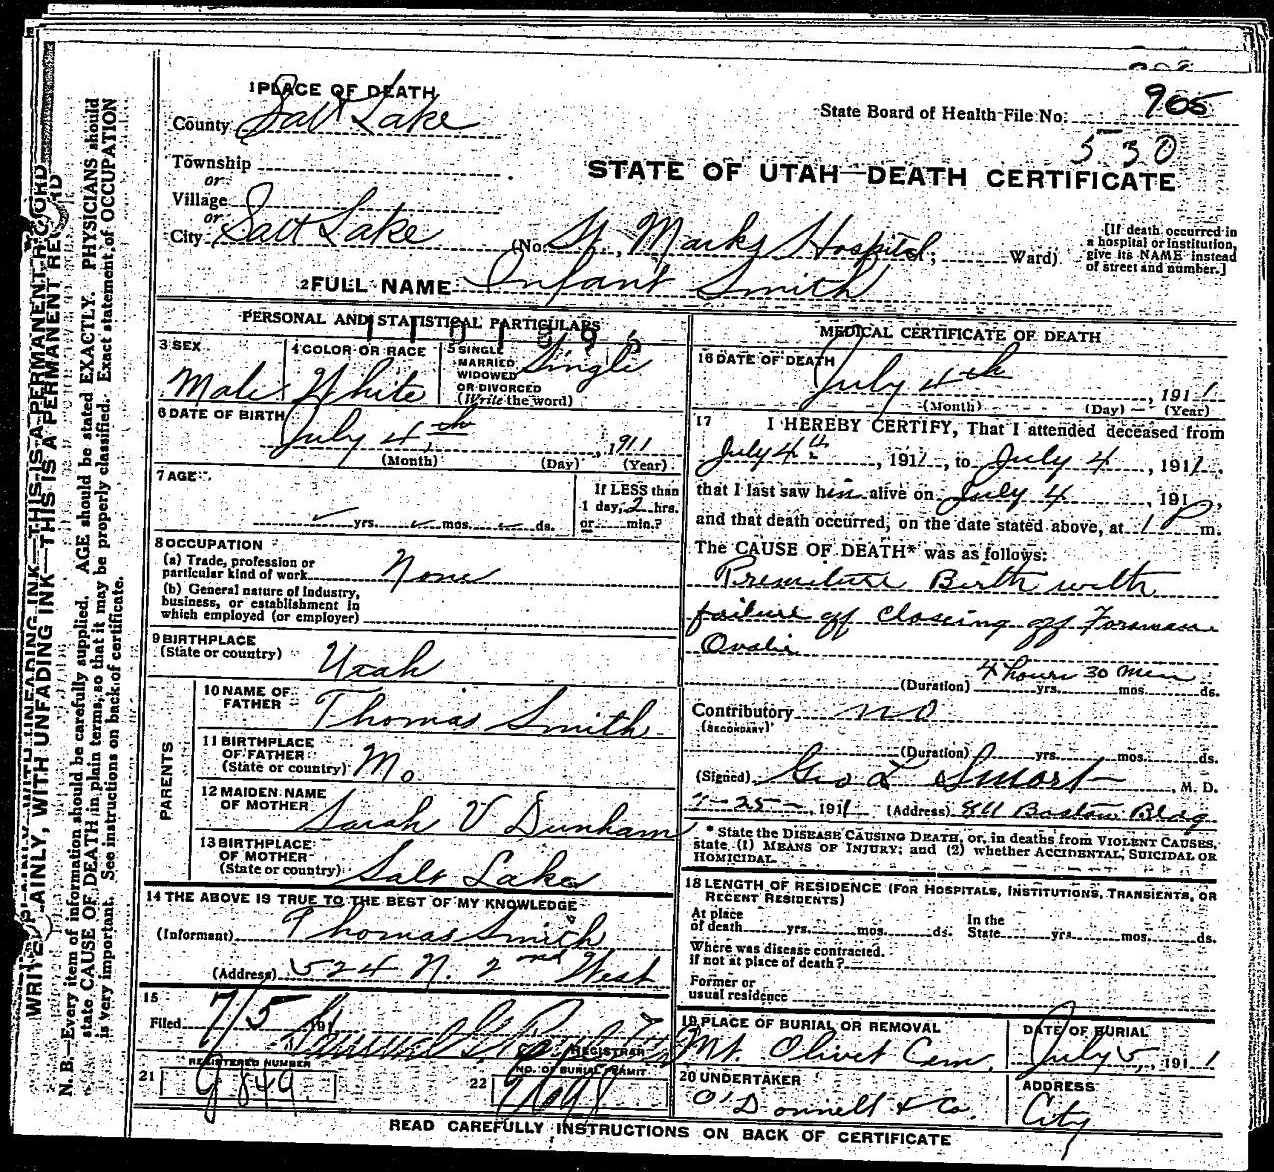 1 PLACE OF DEATH
County Salt Lake
State Board of Health File No. 905
530
Township
or
Village
or
City Salt Lake (No. St. Marks Hospital; Ward)
STATE OF UTAH—DEATH CERTIFICATE
[If death occurred in
a hospital or institution,
give its NAME instead
of street and number.]
2 FULL NAME Infant Smith
PERSONAL AND STATISTICAL PARTICULARS
3 SEX
Male
4 COLOR OR RACE
White
5 SINGLE
MARRIED
WIDOWED
OR DIVORCED
(Write the word)
Single
6 DATE OF BIRTH
July 4th, 1911
(Month) (Day) (Year)
7 AGE
yrs. mos. ds.
If LESS than
1 day, 2 hrs.
or min.?
8 OCCUPATION
(a) Trade, profession or
particular kind of work None
(b) General nature of industry,
business, or establishment in
which employed (or employer)
9 BIRTHPLACE
(State or country) Utah
PARENTS
10 NAME OF
FATHER Thomas Smith
11 BIRTHPLACE
OF FATHER
(State or country) Mo
12 MAIDEN NAME
OF MOTHER Sarah V Dunham
13 BIRTHPLACE
OF MOTHER
(State or country) Salt Lake
14 THE ABOVE IS TRUE TO THE BEST OF MY KNOWLEDGE
(Informant) Thomas Smith
(Address) 524 N. 2nd West
15
Filed 7/5 191
REGISTRAR
REGISTERED NUMBER
21
NO. OF BURIAL PERMIT
22
MEDICAL CERTIFICATE OF DEATH
16 DATE OF DEATH
July 4th, 1911
(Month) (Day) (Year)
17 I HEREBY CERTIFY, That I attended deceased from
July 4th, 1911, to July 4, 1911.
that I last saw him alive on July 4, 191
and that death occurred, on the date stated above, at 1 P m.
The CAUSE OF DEATH* was as follows:
Premature Birth with
failure of closing of Foramen
Ovale
4 hours 30 Min
(Duration) yrs. mos. ds.
Contributory no
(SECONDARY)
(Duration) yrs. mos. ds.
(Signed) Geo L Smart, M. D.
7-25-, 1911 (Address) 811 Boston Bldg
* State the DISEASE CAUSING DEATH, or, in deaths from VIOLENT CAUSES,
state (1) MEANS OF INJURY; and (2) whether ACCIDENTAL, SUICIDAL OR
HOMICIDAL.
18 LENGTH OF RESIDENCE (FOR HOSPITALS, INSTITUTIONS, TRANSIENTS, OR
RECENT RESIDENTS)
At place
of death yrs. mos. ds.
In the
State yrs. mos. ds.
Where was disease contracted.
if not at place of death?
Former or
usual residence
19 PLACE OF BURIAL OR REMOVAL
Mt. Olivet Cem.
DATE OF BURIAL
July 5, 1911
20 UNDERTAKER
O'Donnell & Co.
ADDRESS
City
READ CAREFULLY INSTRUCTIONS ON BACK OF CERTIFICATE
WRITE PLAINLY, WITH UNFADING INK—THIS IS A PERMANENT RECORD
N. B.—Every item of information should be carefully supplied. AGE should be stated EXACTLY. PHYSICIANS should
state CAUSE OF DEATH in plain terms, so that it may be properly classified. Exact statement of OCCUPATION
is very important. See instructions on back of certificate.